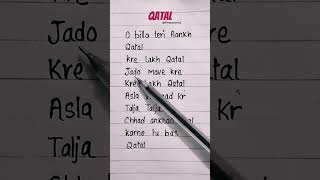 QATAL
O billo teri Aankh
Qatal
Kre lakh Qatal
Jado move kre
Kre lakh Qatal
Asla kr
Talja Talja
Chhad ankhan
karne tu bas
Qatal
Jado
Kre
Asla
Talja